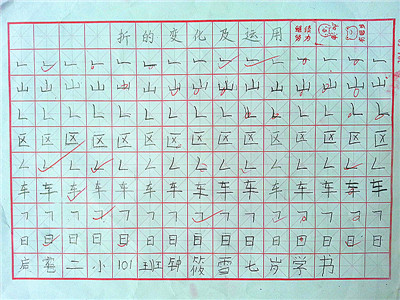 折的变化及运用
继续努力
山山山山山山山山山山山山山山山
区区区区区区区区区区区区区区区
车车车车车车车车车车车车车车车
日日日日日日日日日日日日日日日
二小101班钟筱雪七岁学书